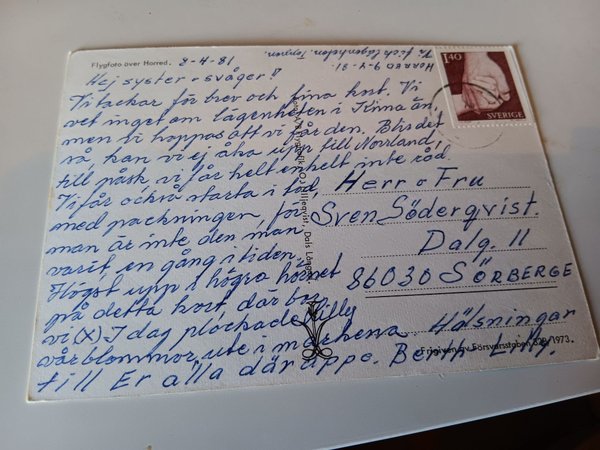 Flygfoto över Horred. 8-4.81
Horred 9-4-81.
Vi fick lägenheten. Toppen.
Hej syster o svåger!
Vi tackar för brev och fina kort. Vi
vet inget om lägenheten i Kinna än,
men vi hoppas att vi får den. Blir det
så, kan vi ej åka upp till Norrland,
till påsk, vi får helt enkelt inte råd.
Vi får också starta i tid,
med packningen, för
man är inte den man
varit en gång i tiden.
Högst upp i högra hörnet
på detta kort där bor
vi (X) I dag plockade Lilly
vårblommor ute i markerna
Hälsningar
till Er alla däruppe. Bertil Lilly.
1.40
SVERIGE
Herr o Fru
Sven Söderqvist.
Dalg. 11
86030 SÖRBERGE
Frigiven av Försvarsstaben 1973.